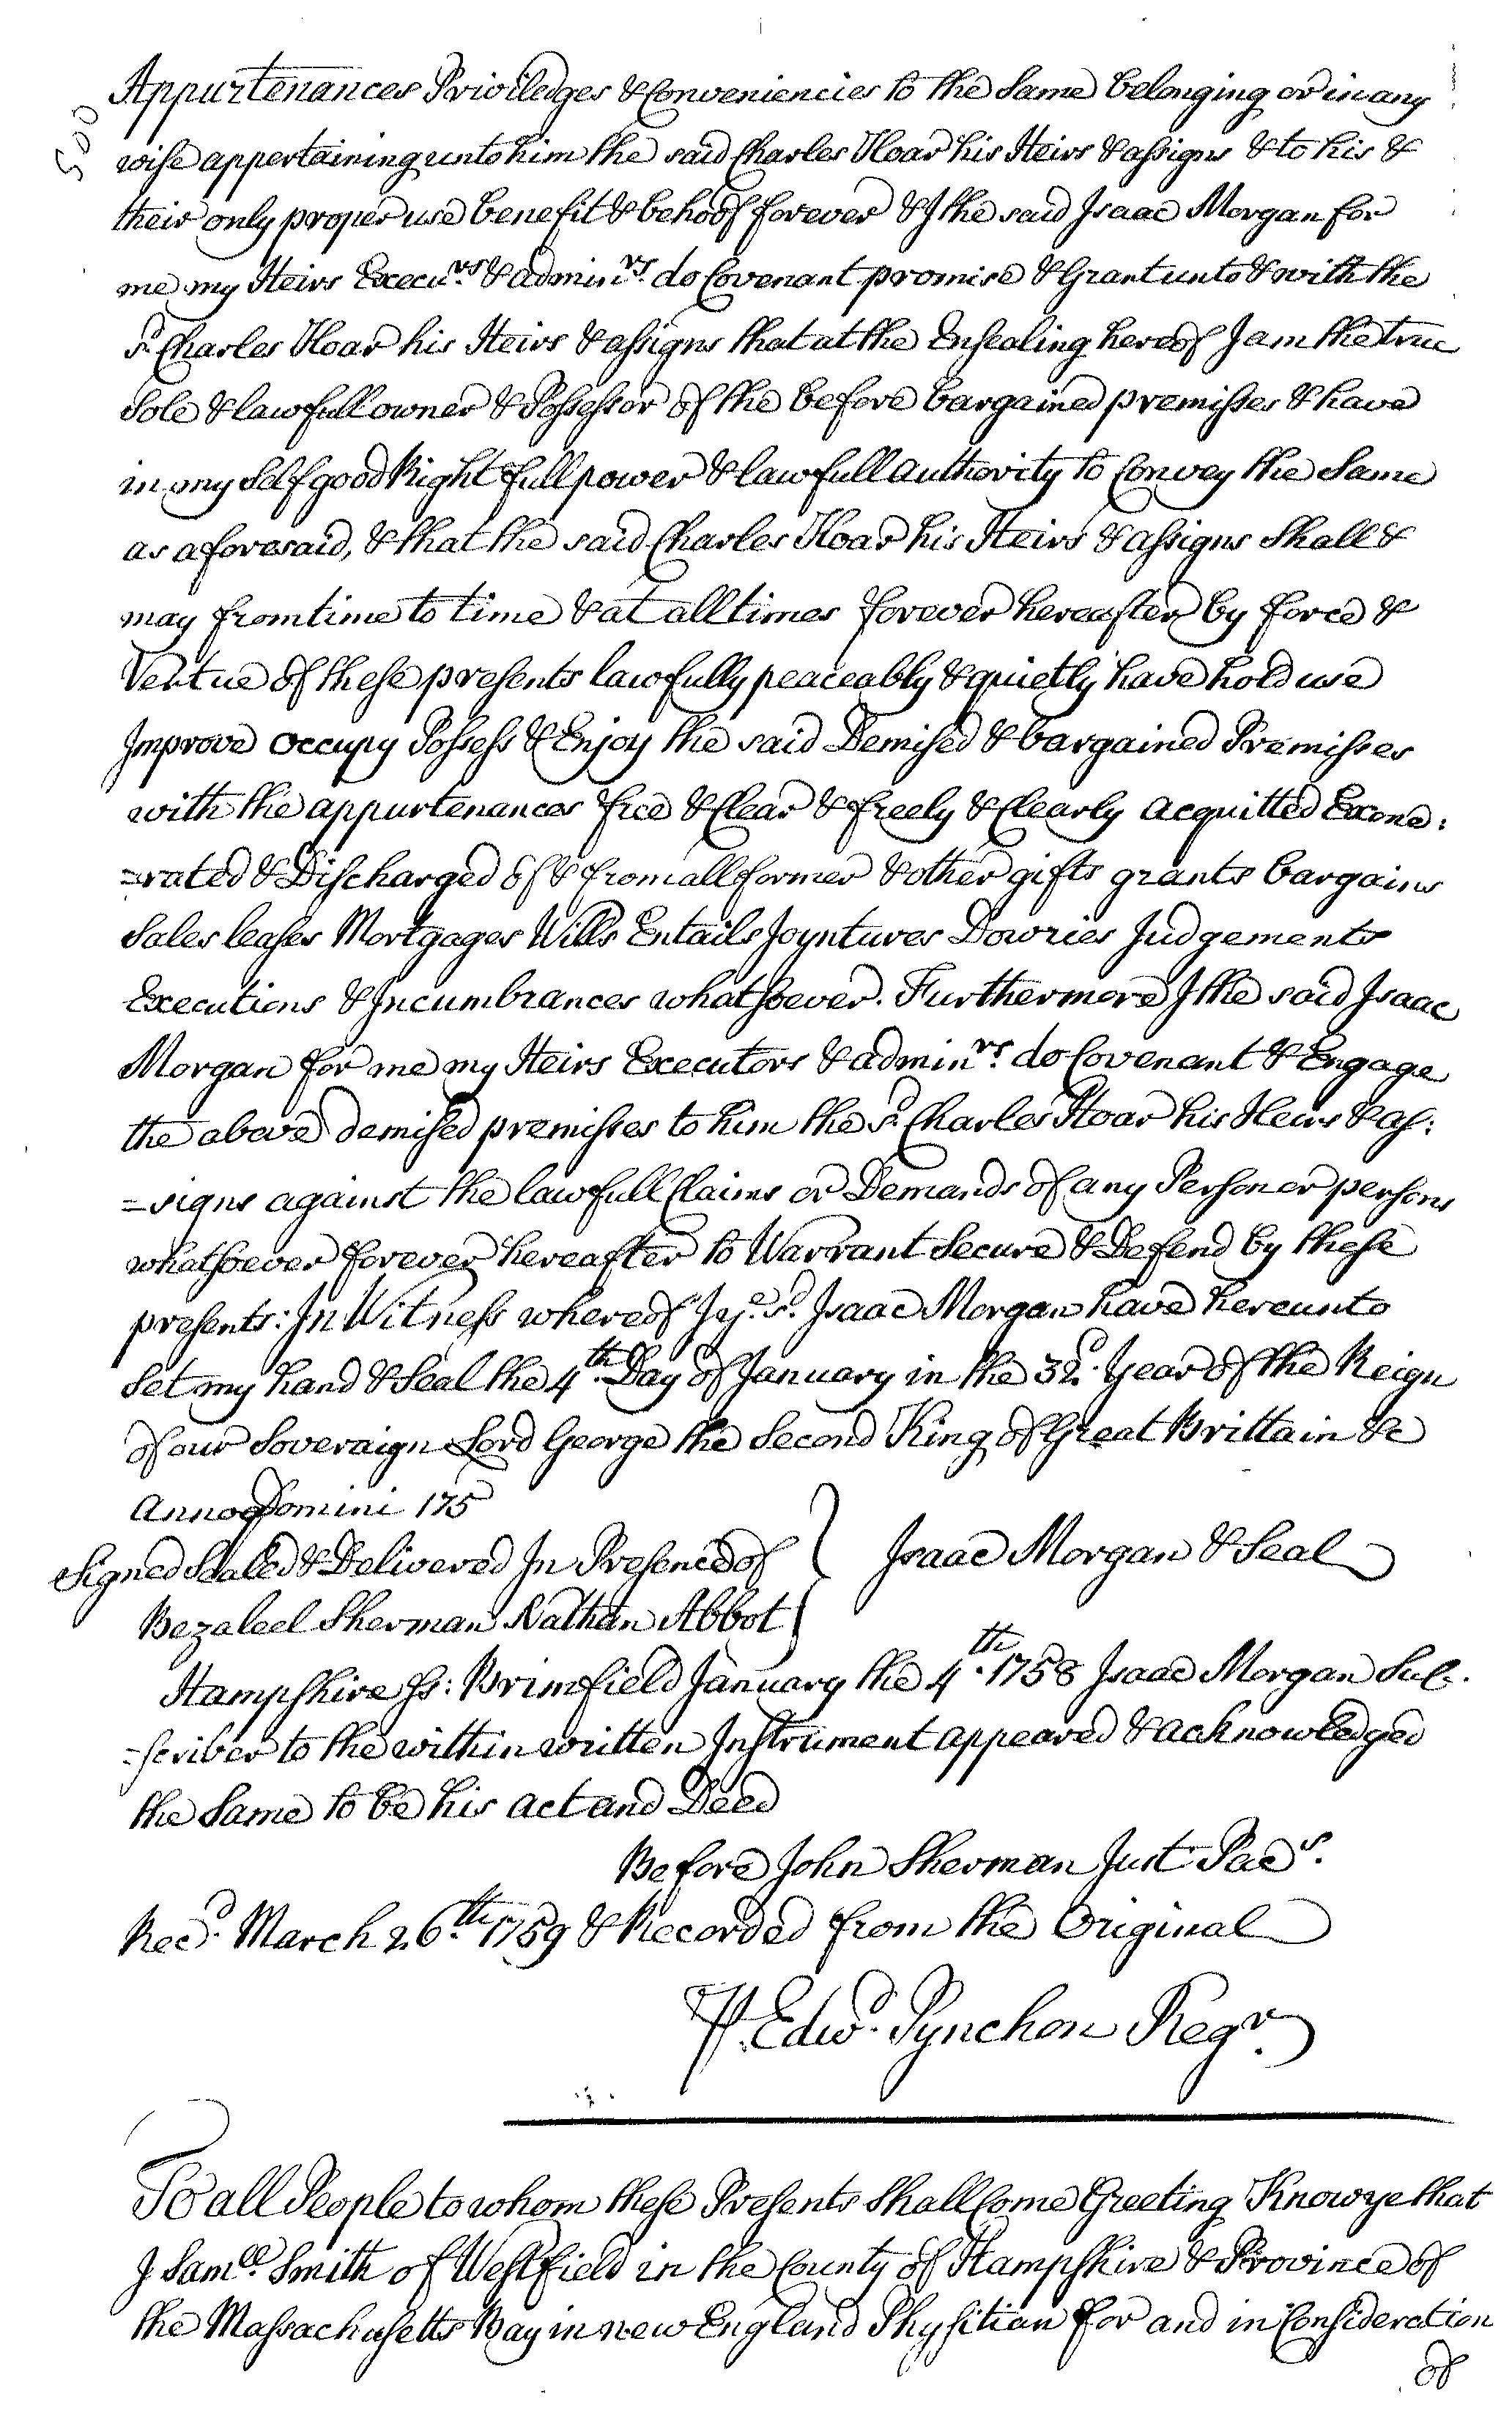 500
Appurtenances Priviledges & Conveniencies to the Same belonging or in any
wise appertaining unto him the said Charles Hoar his Heirs & assigns & to his &
their only proper use benefit & behoof forever & I the said Isaac Morgan for
me my Heirs Execu.rs & admini.rs do Covenant promise & Grant unto & with the
s.d Charles Hoar his Heirs & assigns that at the Ensealing hereof I am the true
Sole & lawfull owner & Possessor of the before bargained premisses & have
in my Self good Right full power & lawfull authority to Convey the Same
as aforesaid, & that the said Charles Hoar his Heirs & assigns Shall &
may from time to time & at all times forever hereafter by force &
Vertue of these presents lawfully peaceably & quietly have hold use
Improve occupy Possess & Enjoy the said Demised & bargained Premisses
with the appurtenances free & Clear & freely & Clearly acquitted Exone:
=rated & Discharged of & from all former & other gifts grants bargains
Sales leases Mortgages Wills Entails Joyntures Dowries Judgements
Executions & Incumbrances whatsoever. Furthermore I the said Isaac
Morgan for me my Heirs Executors & admin.rs do Covenant & Engage
the above demised premisses to him the s.d Charles Hoar his Heirs & as:
=signs against the lawfull Claims or Demands of any Person or persons
whatsoever forever hereafter to Warrant Secure & Defend by these
presents: In Witness whereof I y.e s.d Isaac Morgan have hereunto
Set my hand & Seal the 4.th Day of January in the 32.d Year of the Reign
of our Soveraign Lord George the Second King of Great Brittain &c
Anno Domini 175
Signed Sealed & Delivered In Presence of } Isaac Morgan & Seal
Bezaleel Sherman Nathan Abbot
Hampshire ss: Brimfield January the 4.th 1758 Isaac Morgan Sub:
=scriber to the within written Instrument appeared & acknowledged
the Same to be his act and Deed
Before John Sherman Just Pac.s
Rec.d March 26.th 1759 & Recorded from the Original
P. Edw.d Pynchon Reg.r
To all People to whom these Presents Shall Come Greeting Know ye that
I Sam.ll Smith of Westfield in the County of Hampshire & Province of
the Massachusetts Bay in new England Physitian for and in Consideration
of